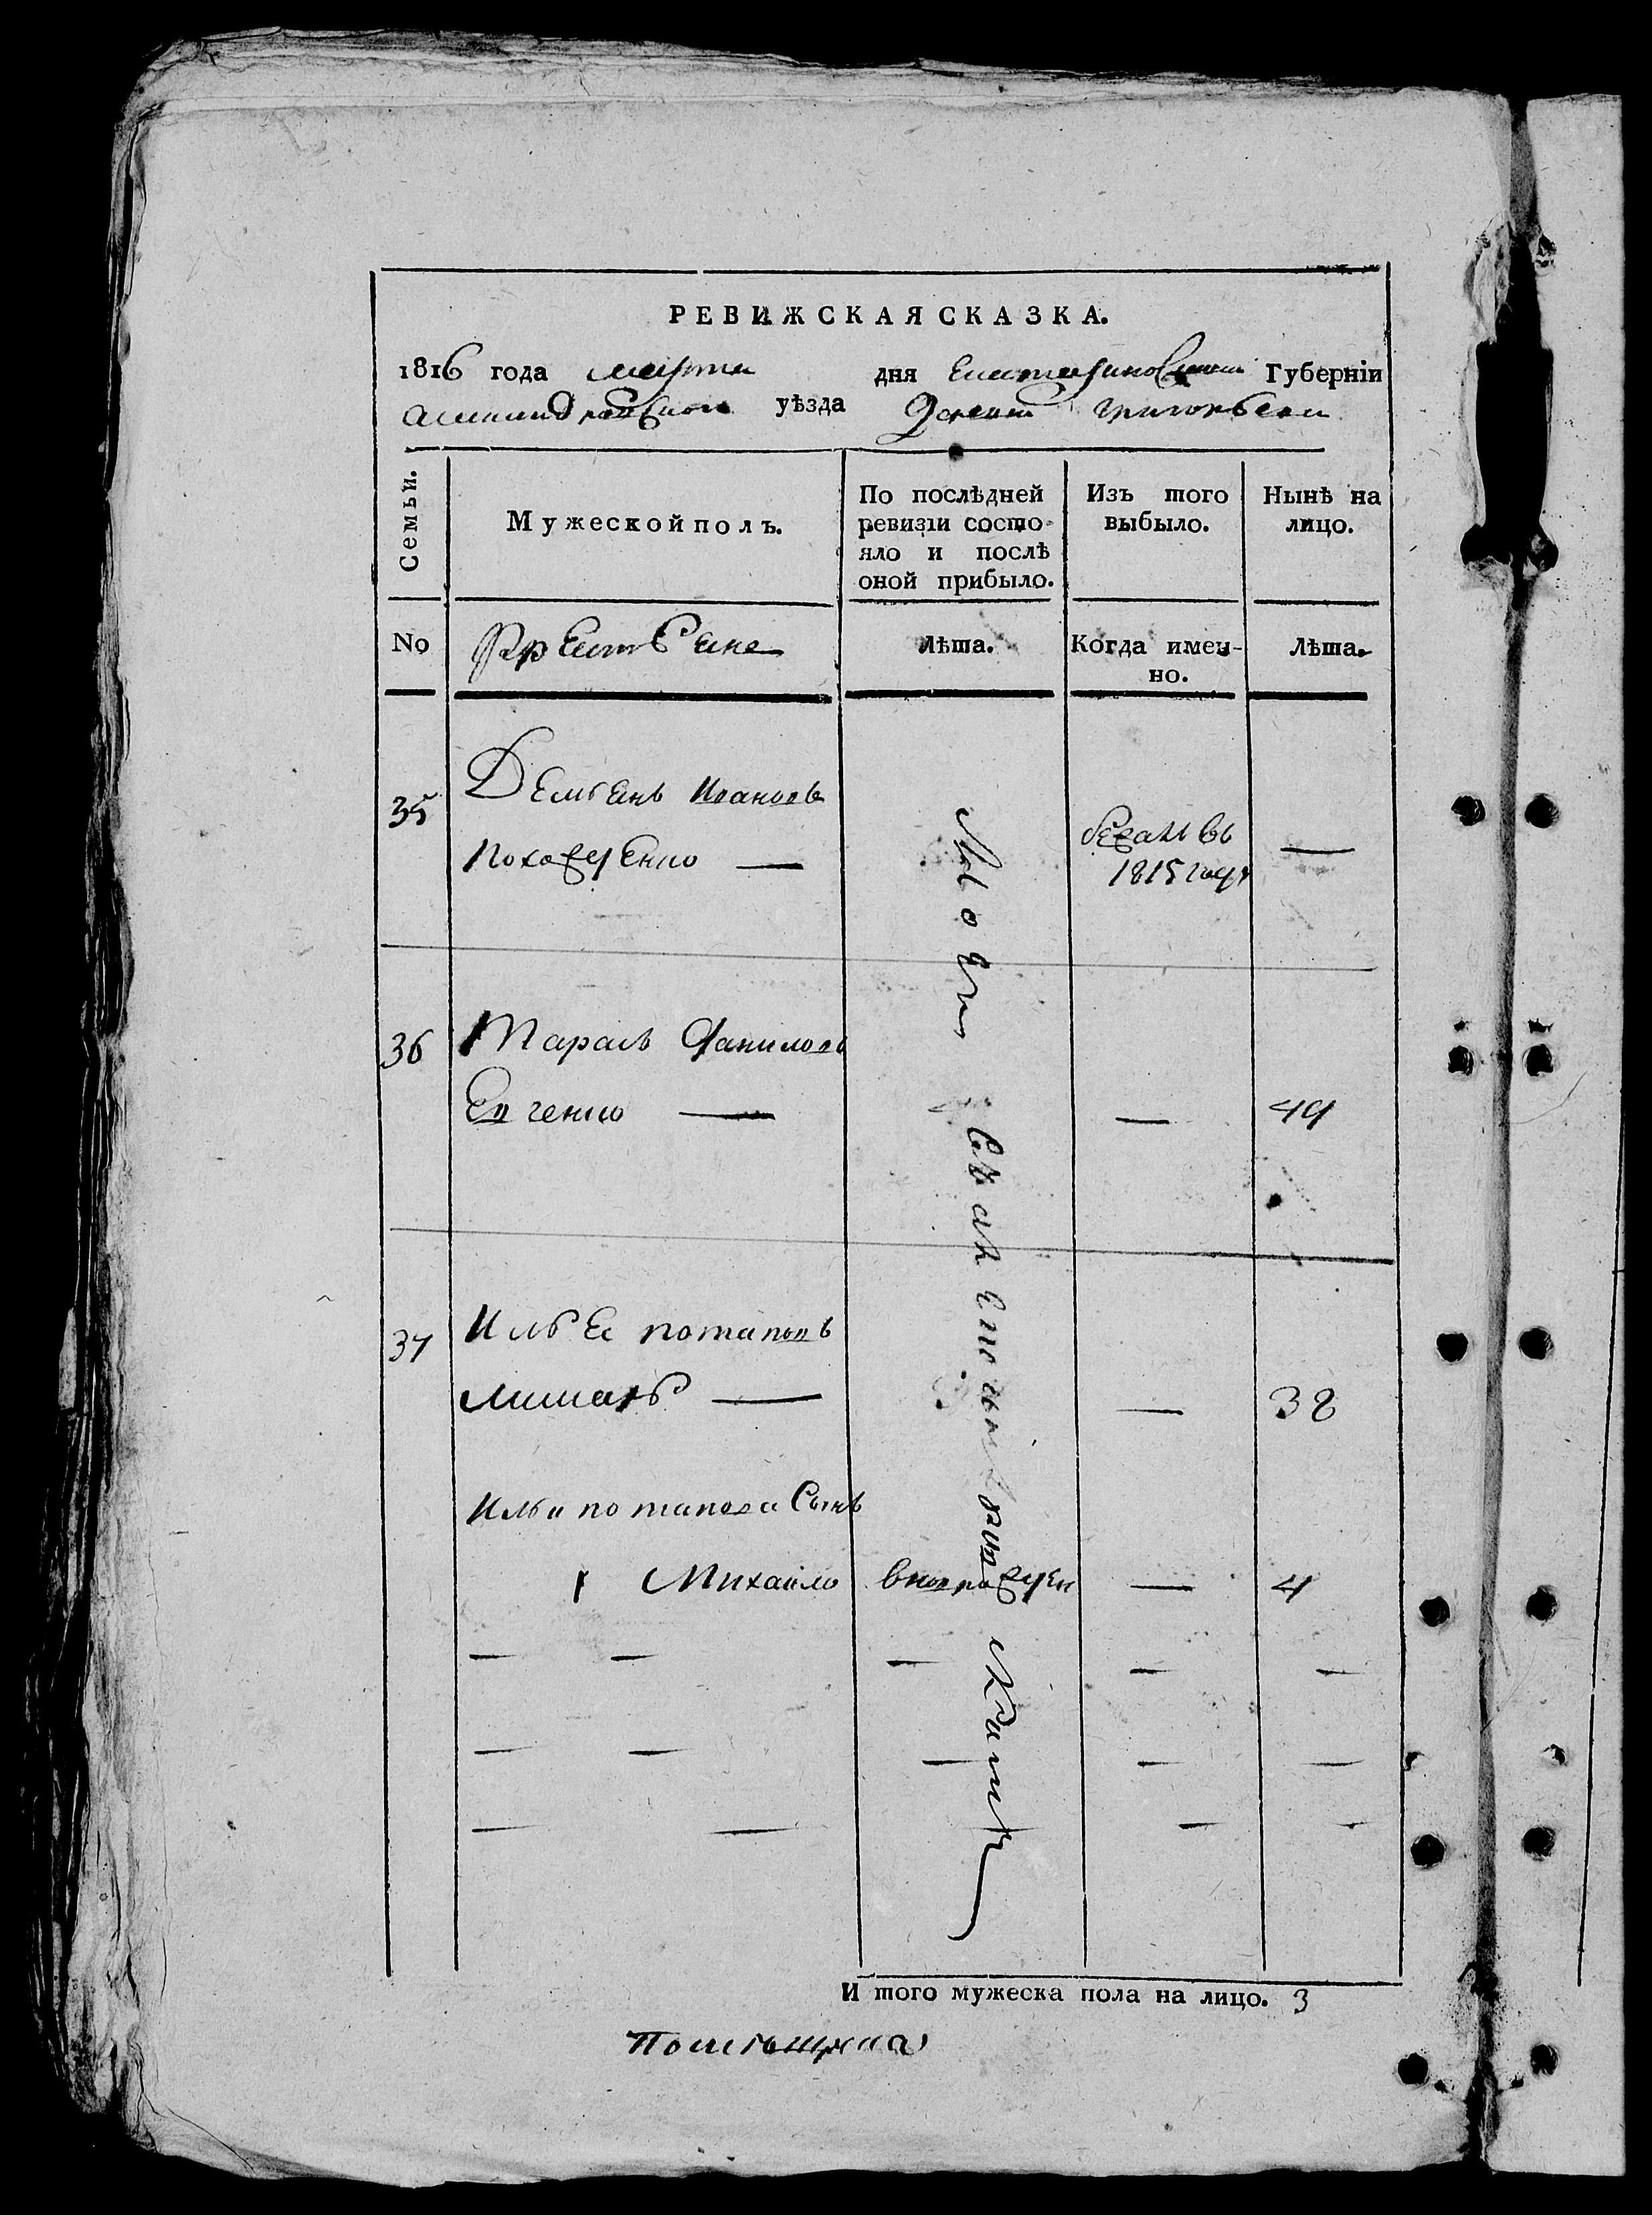 РЕВИЖСКАЯ СКАЗКА.
1816 года марта дня Екатеринославской Губернїи
Александровскаго уѣзда
Семьи.
Мужеской полъ.
По послѣдней ревизїи состояло и послѣ оной прибыло.
Изъ того выбыло.
Нынѣ на лицо.
No
Крестьяне
Лѣта.
Когда именно.
Лѣта.
35
Демьянъ Ивановъ
—
бежалъ въ
1815 году
—
36
Тарасъ Даниловъ
—
—
49
37
Илья Потаповъ
—
—
38
Ильи Потапова Сынъ
Михайло
—
4
И того мужеска пола на лицо. 3
Помѣщица